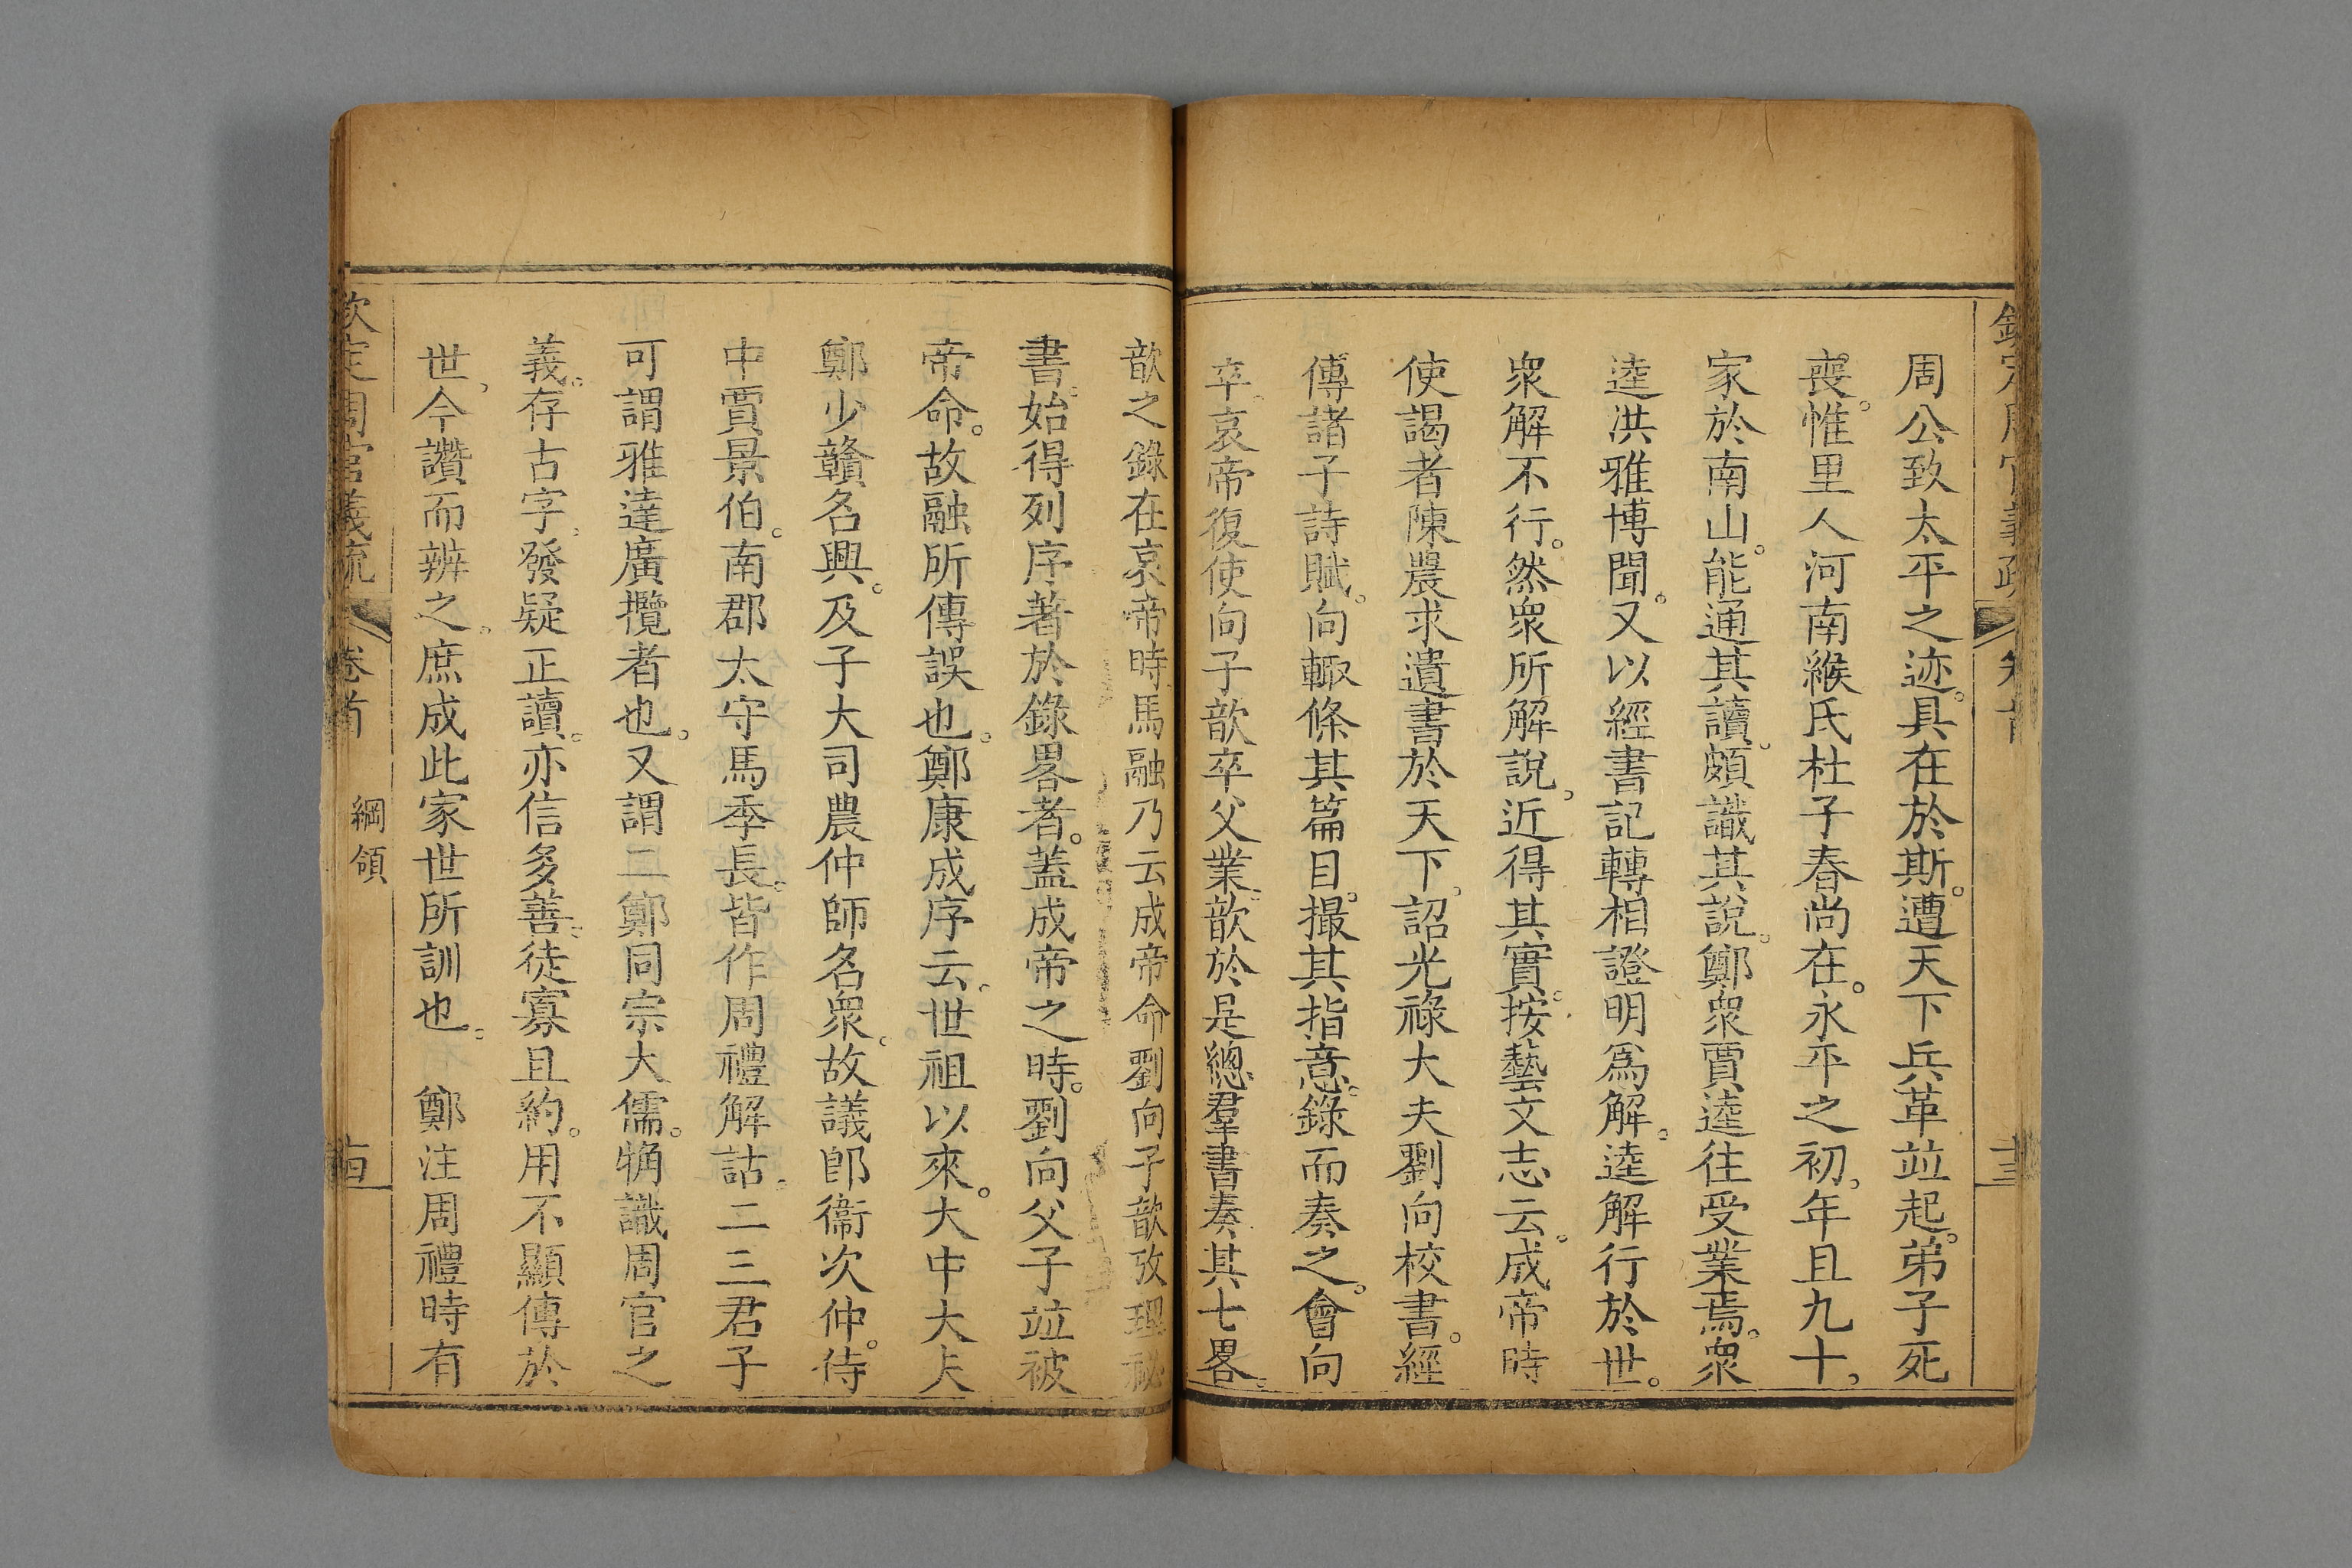 周公致太平之迹。具在於斯。遭天下兵革竝起。弟子死
喪。惟里人河南緱氏杜子春尚在。永平之初。年且九十。
家於南山。能通其讀。頗識其說。鄭衆賈逵往受業焉。衆
逵洪雅博聞。又以經書記轉相證明爲解。逵解行於世。
衆解不行。然衆所解說。近得其實。按藝文志云。成帝時
使謁者陳農求遺書於天下。詔光祿大夫劉向校書。經
傳諸子詩賦。向輙條其篇目。撮其指意。錄而奏之。會向
卒。哀帝復使向子歆卒父業。歆於是總羣書奏其七畧。
歆之錄在哀帝時馬融乃云成帝命劉向子歆攷理祕
書。始得列序著於錄畧者。蓋成帝之時。劉向父子竝被
帝命。故融所傳誤也。鄭康成序云。世祖以來。大中大夫
鄭少贛名興。及子大司農仲師名衆。故議郎衞次仲。侍
中賈景伯。南郡太守馬季長。皆作周禮解詁。二三君子
可謂雅達廣攬者也。又謂二鄭同宗大儒。觕識周官之
義。存古字。發疑正讀。亦信多善。徒寡且約。用不顯傳於
世。今讚而辨之。庶成此家世所訓也。 鄭注周禮時有
欽定周官義疏 卷首 綱領